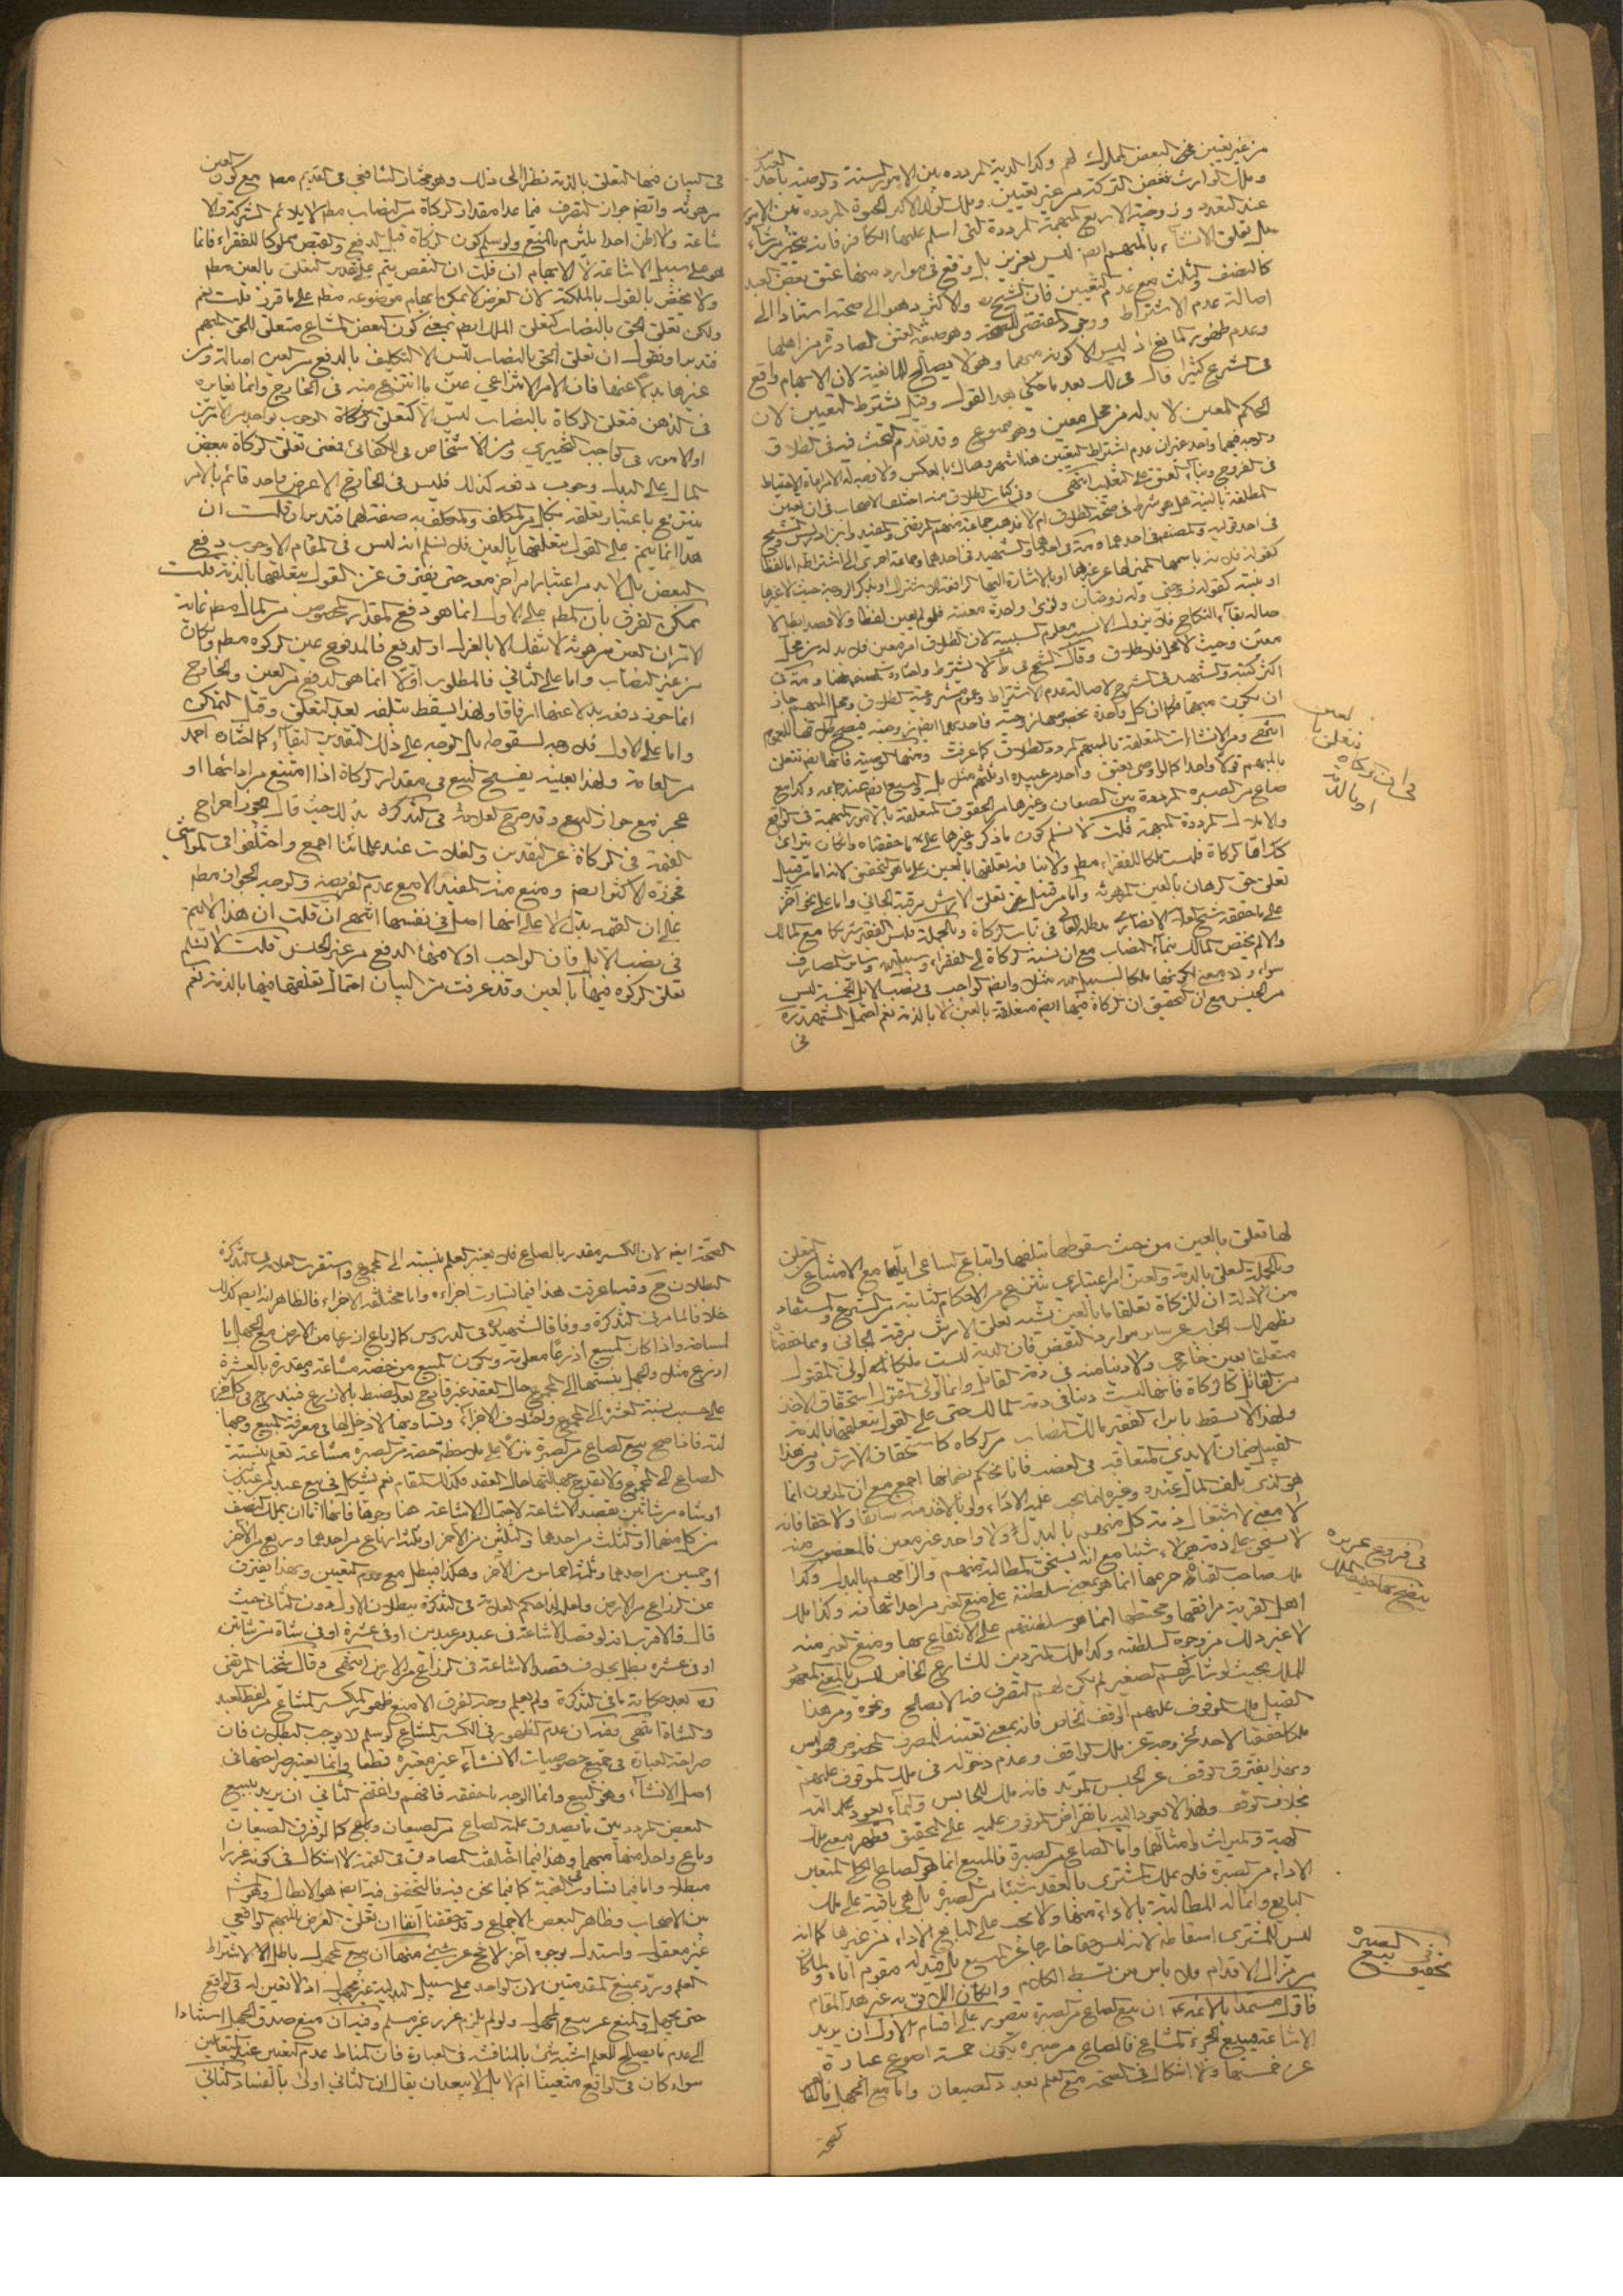 من غير تعيين في البعض المملوك لهم وكذا الدية المرددة بين الامور الستة والوصية باحد العبيد
وملك الوارث بعض التركة من غير تعيين وملك الولد الاكبر الحبوة المرددة بين الامور
عند التعدد وزوجية الاربع المبهمة المرددة التي اسلم عليها الكافر فانه يتخير من شاء
بل تعلق الانشاء بالمبهم ايضا ليس بعزيز بل وقع في موارد منها عتق بعض العبد
كالنصف والثلث مع عدم التعيين فان الشيخ والاكثر ذهبوا الى صحته استنادا الى
اصالة عدم الاشتراط ووجود المقتضي للصحة وهو صيغة العتق الصادرة من اهلها
وعدم ظهور المانع اذ ليس الا كونه مبهما وهو لا يصلح للمانعية لان الابهام واقع
في الشرع كثيرا قال في لك بعد ما حكى هذا القول وقيل يشترط التعيين لان
الحكم المعين لا بد له من محل معين وهو ممنوع وقد تقدم البحث فيه في الطلاق
والوجه فيهما واحد غير ان عدم اشتراط التعيين هنا اشهر وهناك بالعكس ولا وجه له الا مراعاة الاحتياط
في الفروج وبناء العتق على التغليب انتهى وفي كتاب الطلاق منه اختلف الاصحاب في ان تعيين
المطلقة بالنية هل هو شرط في صحة الطلاق ام لا فذهب جماعة منهم المرتضى والمفيد وابن ادريس والشيخ
في احد قوليه والمصنف في احدهما والعلامة في احدها والشهيد في احدهما وجماعة اخرى الى اشتراطه اما لفظا
كقوله فلانة باسمها المميز لها عن غيرها او بالاشارة اليها الرافعة للاشتراك او بذكر الزوجة حيث لا غيرها
او بنية كقوله زوجتي وله زوجتان ونوى واحدة معينة فلو لم يعين لفظا ولا قصدا بطل
اصالة بقاء النكاح فلا يزول الا بسبب معلوم السببية لان الطلاق امر معين فلا بد له من محل
معين وحيث لا محل فلا طلاق وقال الشيخ في ط لا يشترط واختاره المصنف هنا والعلامة في
اكثر كتبه والشهيد في الشرح لاصالة عدم الاشتراط وعموم مشروعية الطلاق ومحل المبهم جاز
ان يكون مبهما فكما ان كل واحدة بخصوصها زوجة فاحديهما ايضا زوجة فيصح طلاقها للعموم
انتهى ومن الانشاءات المتعلقة بالمبهم المردد الطلاق كما عرفت ومنها الوصية فانها ايضا تتعلق
بالمبهم قولا واحدا كما لو اوصى بعتق واحد من عبيده او ثلثهم مثلا بل والبيع ايضا عند جماعة وكذا بيع
صاع من الصبرة المرددة بين الصيعان وغيرها من الحقوق المتعلقة بالامور المبهمة في الواقع
والاملاك المرددة المبهمة قلت لا نسلم كون ما ذكر وغيرها على ما حققناه وان كان يتراءى
كذلك اما الزكاة فليست ملكا للفقراء مطلقا ولا ينافيه تعلقها بالعين على ما هو التحقيق لانه اما من قبيل
تعلق حق الرهان بالعين المرهونة واما من قبيل تعلق الارش برقبة الجاني واما على نحو آخر
على ما حققه شيخنا الانصاري مد ظله العالي في باب الزكاة وبالجملة فليس الفقير شريكا مع المالك
والا لم يختص المالك بنماء النصاب مع ان نسبة الزكاة الى الفقراء وسبيل الله وسائر المصارف
سواء ولا معنى لكونها ملكا لسبيل الله مثلا وايضا الواجب في نصب الابل الخمسة ليس
من الجنس مع ان التحقيق ان الزكاة فيها ايضا متعلقة بالعين لا بالذمة نعم احتمل الشهيد ره
في
في ان الزكاة
تتعلق بالعين
او بالذمة
في البيان فيها التعلق بالذمة نظرا الى ذلك وهو مختار الشافعي في القديم مطلقا مع كون العين
مرهونة وايضا جواز التصرف فيما عدا مقدار الزكاة من النصاب مطلقا لا يلائم الشركة والا
شاعة ولا اظن احدا يلتزم بالمنع ولو سلم كون الزكاة قبل الدفع والقبض مملوكا للفقراء فانما
هو على سبيل الاشاعة لا الابهام ان قلت ان النقض يتم على تقدير التعلق بالعين مطلقا
ولا يختص بالقول بالملكية لان الغرض لا يمكن ابهام موضوعه مطلقا على ما قرر قلت نعم
ولكن تعلق الحق بالنصاب كتعلق الملك ايضا بمعنى كون البعض المشاع متعلق الحق المبهم
فتدبر او نقول ان تعلق الحق بالنصاب ليس الا التكليف بالدفع من العين اصالة ومن
غيرها بدلا عنها فان الامر الانتزاعي عين ما انتزع منه في الخارج وانما يغايره
في الذهن فتعلق الزكاة بالنصاب ليس الا كتعلق الوجوب بواحد من الامرين
او الامور في الواجب التخييري ومن الاشخاص في الكفائي فمعنى تعلق الزكاة ببعض
المال على البدل وجوب دفعه كذلك فليس في الخارج الا عرض واحد قائم بالامر
ينتزع باعتبار تعلقه بكل من المكلف والمكلف به صفة لهما فتدبر ان قلت ان
هذا انما يتم على القول بتعلقها بالعين فلا نسلم انه ليس في المقام الا وجوب دفع
البعض بل لا بد من اعتبار امر آخر معه حتى يفترق عن القول بتعلقها بالذمة قلت
يمكن الفرق بان المطلوب على الاول انما هو دفع المقدار المخصوص من المال مطلقا غاية
الامر ان العين مرهونة لا تنفك الا بالعزل او الدفع فالمدفوع عين الزكوة مطلقا وان كان
من غير النصاب واما على الثاني فالمطلوب اولا انما هو الدفع من العين والخارج
انما جوز دفعه بدلا عنها ارفاقا ولهذا يسقط بتلفه بعد التعلق وقبل التمكن
واما على الاول فلا وجه لسقوطه بل الوجه على ذلك التقدير البقاء كما اختاره احمد
من العامة ولهذا بعينه يفسخ البيع في مقدار الزكاة اذا امتنع من ادائها او
عجز مع جواز البيع وقد صرح العلامة في التذكرة بذلك حيث قال يجوز اخراج
القيمة في الزكاة عن النقدين والغلات عند علمائنا اجمع واختلفوا في المواشي
فجوزه الاكثر ايضا ومنع منه المفيد الا مع عدم الفريضة والوجه الجواز مطلقا
على ان القيمة بدل لا على انها اصل في نفسها انتهى ان قلت ان هذا لا يتم
في نصب الابل فان الواجب اولا منها الدفع من غير الجنس قلت لا نسلم
تعلق الزكوة فيها بالعين وقد عرفت من البيان احتمال تعلقها فيها بالذمة نعم
لها تعلق بالعين من حيث سقوطها بتلفها واتباع الساعي اياها مع الامتناع
وبالجملة التعلق بالذمة والعين امر اعتباري ينتزع من الاحكام الثابتة من الشرع والمستفاد
من الادلة ان للزكاة تعلقا ما بالعين يشبه تعلق الارش برقبة الجاني ومما حققنا
يظهر لك الجواب عن سائر موارد النقض فان الدية ليست ملكا لولي المقتول
متعلقا بعين خارجي ولا دينا منه في ذمة القاتل وانما لولي المقتول استحقاق الاخذ
من القاتل كالزكاة فانها ليست دينا في ذمة المالك حتى على القول بتعلقها بالذمة
ولهذا لا يسقط بابراء الفقير مالك النصاب من الزكاة كاستحقاق الارش ومن هذا
القبيل ضمان الايدي المتعاقبة في الغصب فانا نحكم بضمانها اجمع مع ان المديون انما
هو الذي تلف المال عنده وغيره انما يجب عليه الاداء ولو بالاخذ منه سابقا ولاحقا فانه
لا معنى لاشتغال ذمة كل منهم بالبدل ولا واحد غير معين فالمغصوب منه
لا يستحق على ذمة هؤلاء شيئا مع انه يستحق المطالبة منهم والزامهم بالبدل وكذا
ملك صاحب القناة حريمها انما هو بمعنى سلطنة على منع الغير من احداثها فيه وكذا ملك
اهل القرية مرافقها ومحتطبها انما هو سلطنتهم على الانتفاع بها ومنع الغير منه
لا غير ذلك من وجوه السلطنة وكذا ملك المترددين للشارع الخاص ليس بالمعنى المعهود
للملك بحيث لو شاركهم الصغير لم يكن لهم التصرف فيه الا بصالح ونحوه ومن هذا
القبيل ملك الموقوف عليهم الوقف الخاص فانه بمعنى تعيينه للمصرف المخصوص وهو ليس
ملكا حقيقيا لاحد لخروجه عن ملك الواقف وعدم دخوله في ملك الموقوف عليهم
وبهذا يفترق الوقف عن الحبس المؤبد فانه ملك للحابس والنماء يعود اليه
بخلاف الوقف ولهذا لا يعود اليه بانقراض الموقوف عليه على التحقيق فظهر بهذا ملك
الهبة والميراث وامثالها واما الصاع من الصبرة فالمبيع انما هو الصاع الكلي المتعين
الاداء من الصبرة فلا يملك المشتري بالعقد شيئا من الصبرة بل هي باقية على ملك
البايع وانما له المطالبة بالاداء منها ولا يجب على البايع الاداء من غيرها كما انه
ليس للمشتري اسقاطه لانه ليس حقا خارجا عن المبيع بل قيد له مقوم اياه ولما كان
من مزال الاقدام فلا باس من بسط الكلام وان كان اللايق به غير هذا المقام
فاقول مستمدا بالائمة ع ان بيع الصاع من الصبرة يتصور على اقسام الاول ان يريد
الاشاعة فيبيع الجزء المشاع فالصاع من صبرة يكون خمسة اصوع عبارة
عن خمسها ولا اشكال في الصحة مع العلم بعدد الصيعان واما مع الجهل فالظاهر
الصحة
في فروع عزيزة
يتضح بها حقيقة الملك
في بيع الصبرة
تحقيق
الصحة ايضا لان الكسر مقدر بالصاع فلا يعتبر العلم بنسبته الى المجموع واستقرب العلامة في التذكرة
البطلان ح وقد عرفت هذا فيما تساوت اجزاءه واما مختلفة الاجزاء فالظاهر انه ايضا كذلك
خلافا لما مر في التذكرة ووفاقا للشهيد في الدروس كما لو باع اذرعا من الارض مع الجهل با
لمساحة واذا كان المبيع اذرعا معلومة ويكون المبيع من حصة مشاعة ومقدرة بالعشرة
اذرع مثلا والجهل بنسبتها الى المجموع حال العقد غير قادح بعد الضبط بالاذرع فيندرج في كل جزء
على حسب نسبة العشرة الى المجموع واختلاف الاجزاء وتساويها لا دخل لها في معرفة المبيع وجها
لته فاذا صح بيع الصاع من الصبرة منزلا على ملاحظة حصة من الصبرة مشاعة تعلم بنسبة
الصاع الى المجموع ولا يقدح جهالتها حال العقد فكذلك المقام نعم يشكل في بيع عبد من عبدين
او شاة من شاتين بقصد الاشاعة لاحتمال الاشاعة هنا وجوها فانها اما ان يملك النصف
من كل منهما او الثلث من احدهما والثلثين من الآخر او ثلثة ارباع من احدهما وربع من الآخر
او خمسين من احدهما وثلثة اخماس من الآخر وهكذا فيبطل مع عدم التعيين وبهذا يفترق
عن الذراع من الارض ولعله لذا حكم العلامة في التذكرة ببطلان الاول دون الثاني حيث
قال فالاقرب انه لو قصد الاشاعة في عبد من عبدين او في عشرة او في شاة من شاتين
او في عشرة بطل بخلاف قصد الاشاعة في الذراع من الارض انتهى وقال شيخنا المرتضى
ره بعد حكاية ما في التذكرة ولم يعلم وجه الفرق الا منع ظهور الكسر المشاع من لفظ العبد
والشاة انتهى وفيه ان عدم الظهور في الكسر المشاع لو سلم لا يوجب البطلان فان
صراحة العبارة في جميع خصوصيات الانشاء غير معتبرة قطعا وانما يعتبر صراحتها في
اصل الانشاء وهو البيع وانما الوجه ما حققه فافهم واغتنم الثاني ان يريد بيع
البعض المردد بين ما يصدق عليه الصاع من الصيعان وبلغ كما لو فرق الصيعان
وباع واحدا منها مبهما وهذا فيما اختلفت المصاديق في القيمة لا اشكال في كونه غررا
مبطلا واما فيما تساوت القيمة كما فيما نحن فيه فالتحقيق فيه ايضا هو الابطال وهو المشهور
بين الاصحاب وظاهر البعض الاجماع وقد حققنا آنفا ان تعلق الغرض بالمبهم الواقعي
غير معقول واستدل بوجوه آخر لا تخلو عن شيء منها ان بيع المجهول باطل لاشتراط
العلم ويرد بمنع المقدمتين لان الواحد على سبيل البدلية غير مجهول اذ لا تعين له في الواقع
حتى يجهل والمنع عن بيع المجهول ولو لم يلزم غرر غير مسلم وفيه ان منع صدق الجهل استنادا
الى عدم ما يصلح للعلم اشبه شيء بالمناقشة في العبارة فان المناط عدم التعين عند المتعاملين
سواء كان في الواقع متعينا ام لا بل لا يبعد ان يقال ان الثاني اولى بالفساد كالثاني